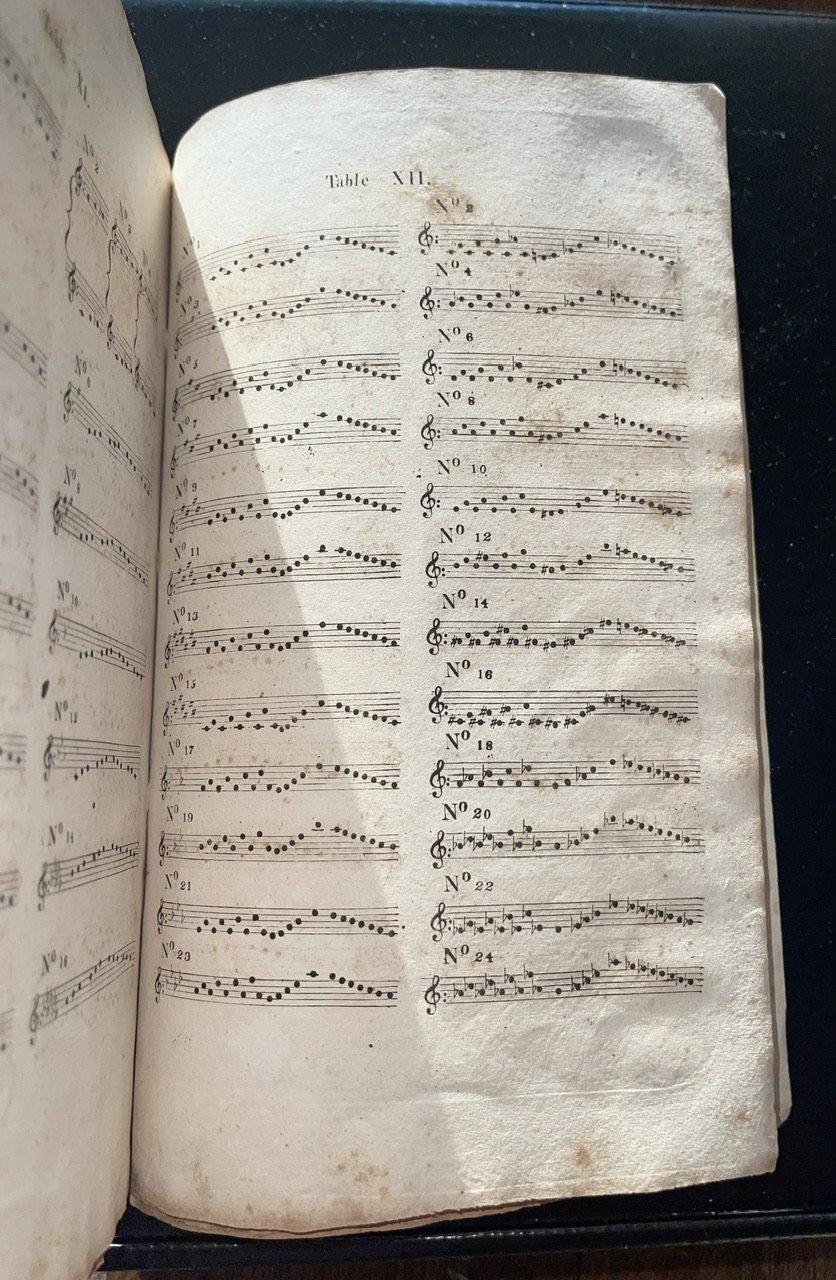 XI.
Nº 2
Nº 6
Nº 8
Nº 10
Nº 12
Nº 14
Nº 16
Table XII.
Nº 1
Nº 2
Nº 3
Nº 4
Nº 5
Nº 6
Nº 7
Nº 8
Nº 9
Nº 10
Nº 11
Nº 12
Nº 13
Nº 14
Nº 15
Nº 16
Nº 17
Nº 18
Nº 19
Nº 20
Nº 21
Nº 22
Nº 23
Nº 24